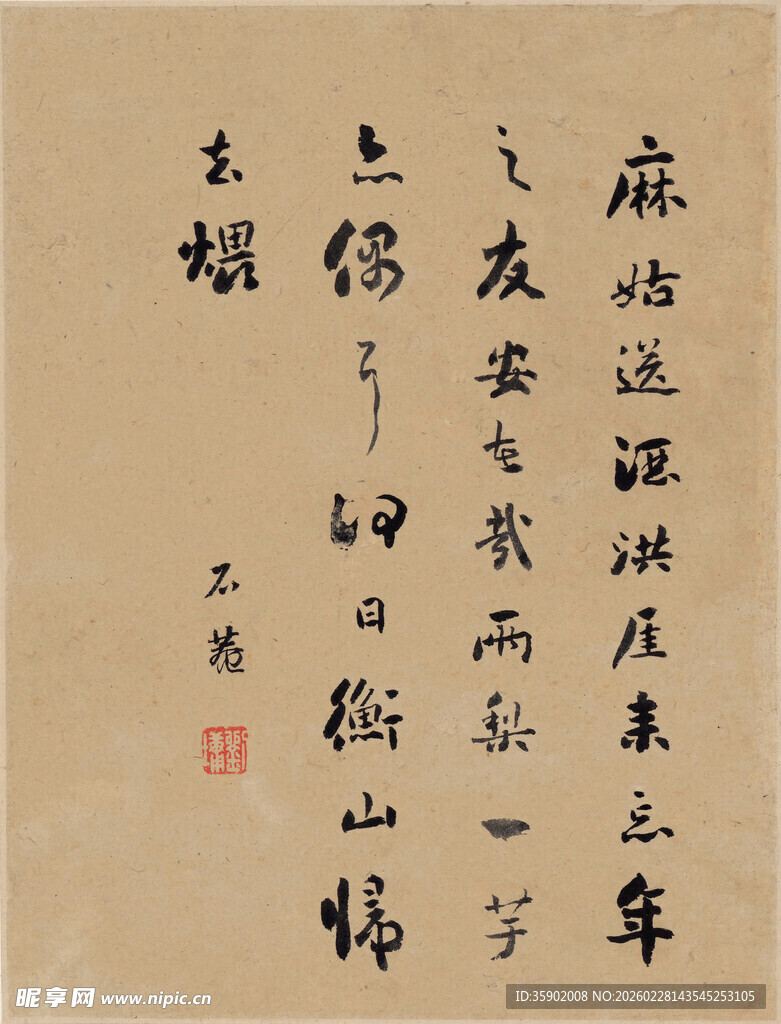 麻姑送酒洪厓来忘年
之友安在哉兩梨一芋
亦偶耳何日衡山歸
去煨
石菴
劉墉
昵享网 www.nipic.cn
ID:35902008 NO:20260228143545253105